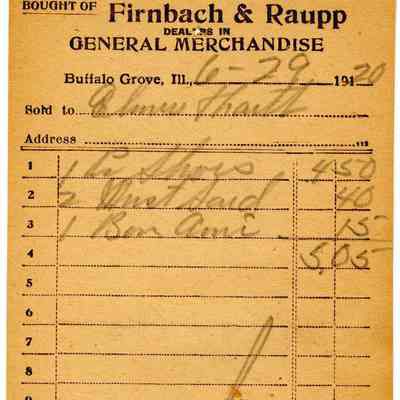 BOUGHT OF Firnbach & Raupp
DEALERS IN
GENERAL MERCHANDISE
Buffalo Grove, Ill., 6-29 1920
Sold to
Address
1 1 Pr Shoes 4 50
2 2 Mustard 40
3 1 Bon Ami 15
4 5.05
5
6
7
8
9